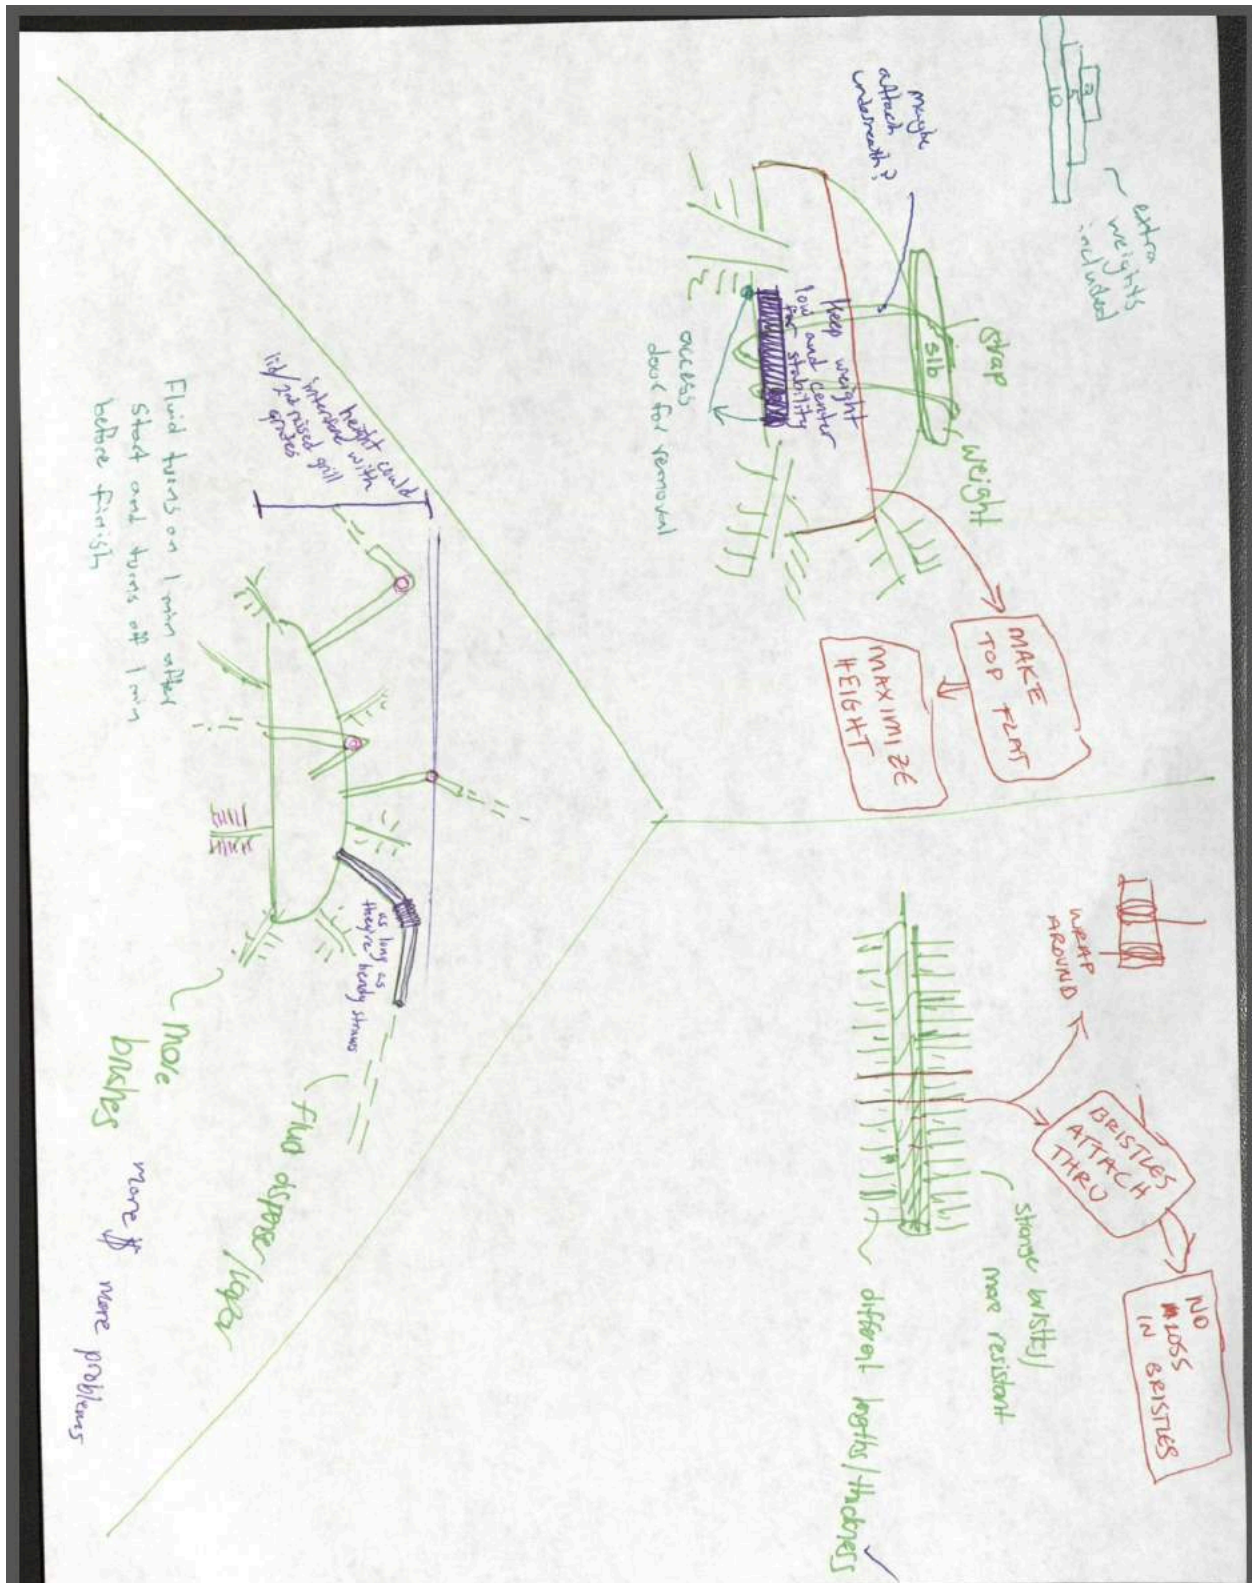 2
5
10
extra
weights
included
maybe
attach
underneath?
strap
5lb
weight
Keep weight
low and center
for stability
access
door for removal
MAKE
TOP FLAT
MAXIMIZE
HEIGHT
WRAP
AROUND
BRISTLES
ATTACH
THRU
NO
LOSS
IN BRISTLES
bristles/
more resistant
different lengths/thickness
height could
interfere with
lid/2nd raised grill
grates
Fluid turns on 1 min after
start and turns off 1 min
before finish
as long as
they're bendy straws
fluid
more
brushes
more $$ more problems